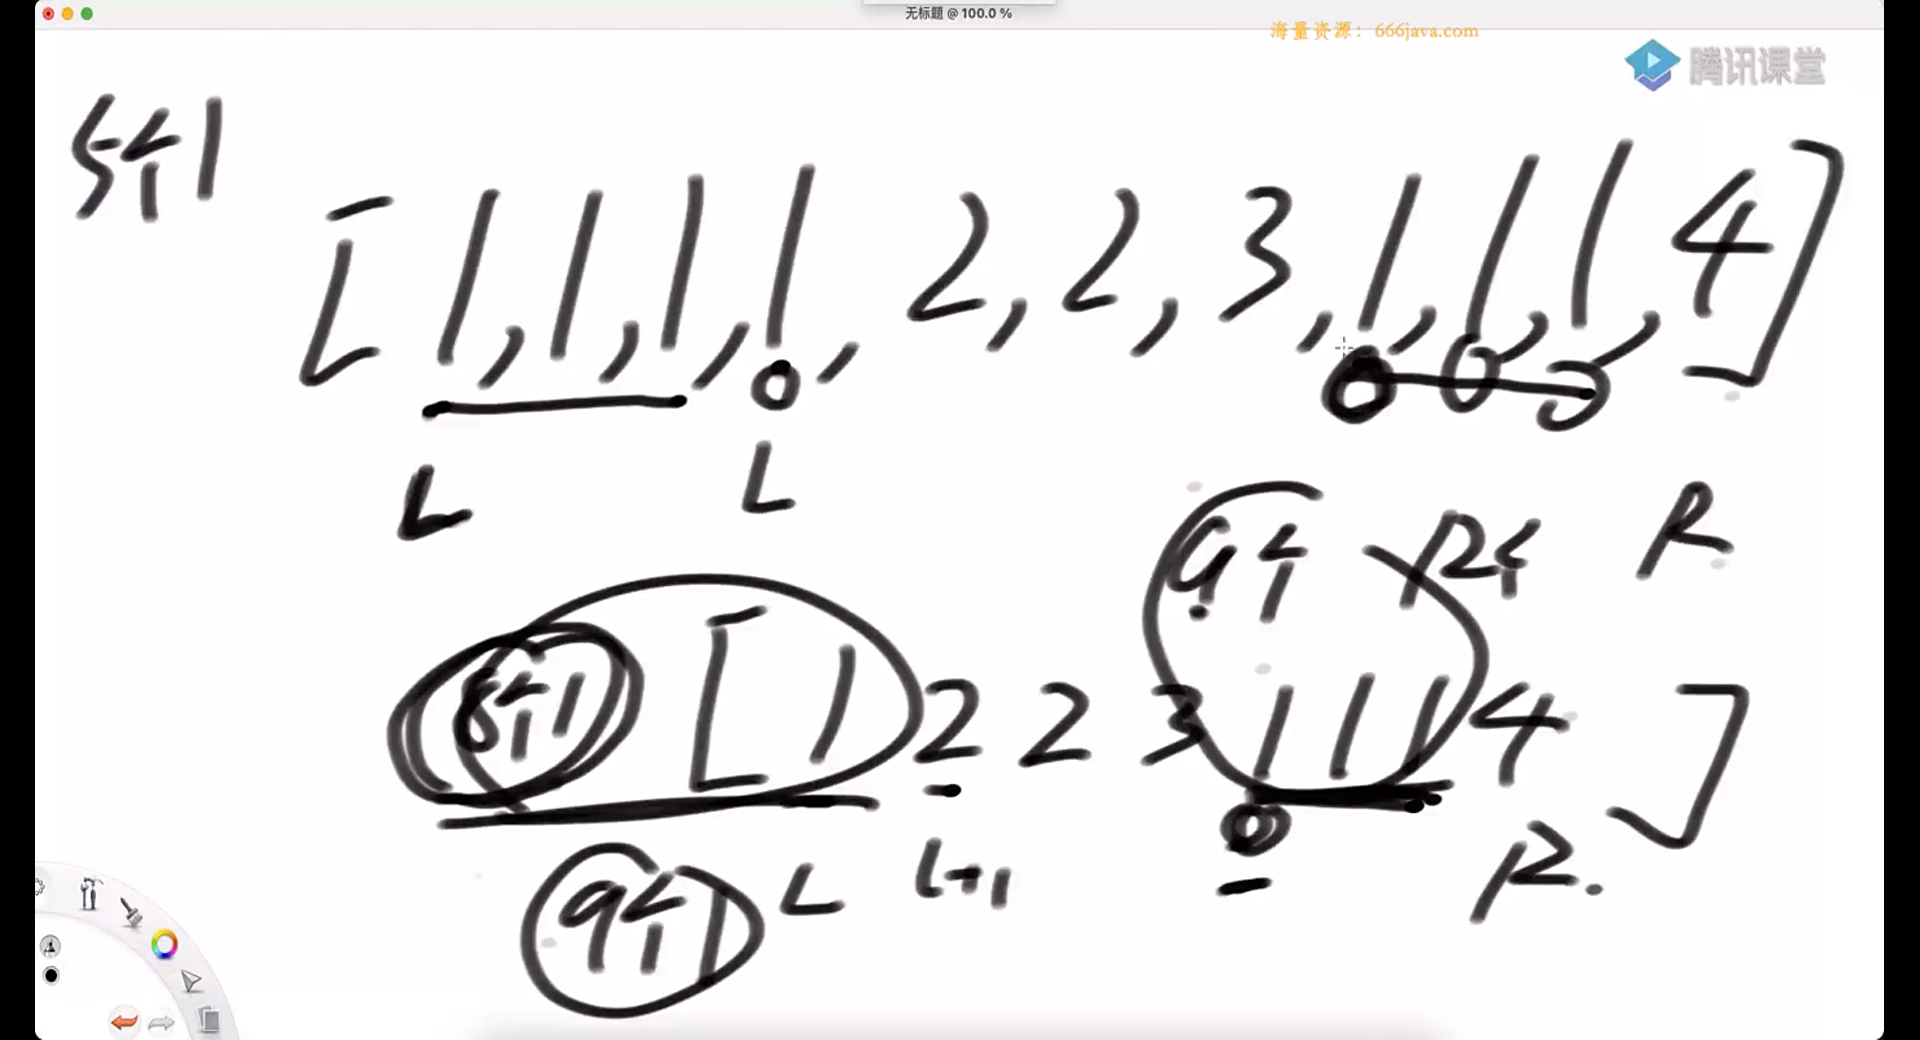 无标题 @ 100.0 %
海量资源：666java.com
腾讯课堂
5个1
[1,1,1,1,2,2,3,1,1,1,4]
L L R
9个
[1 2 2 3 1 1 1 4]
9个1 L L+1 R.